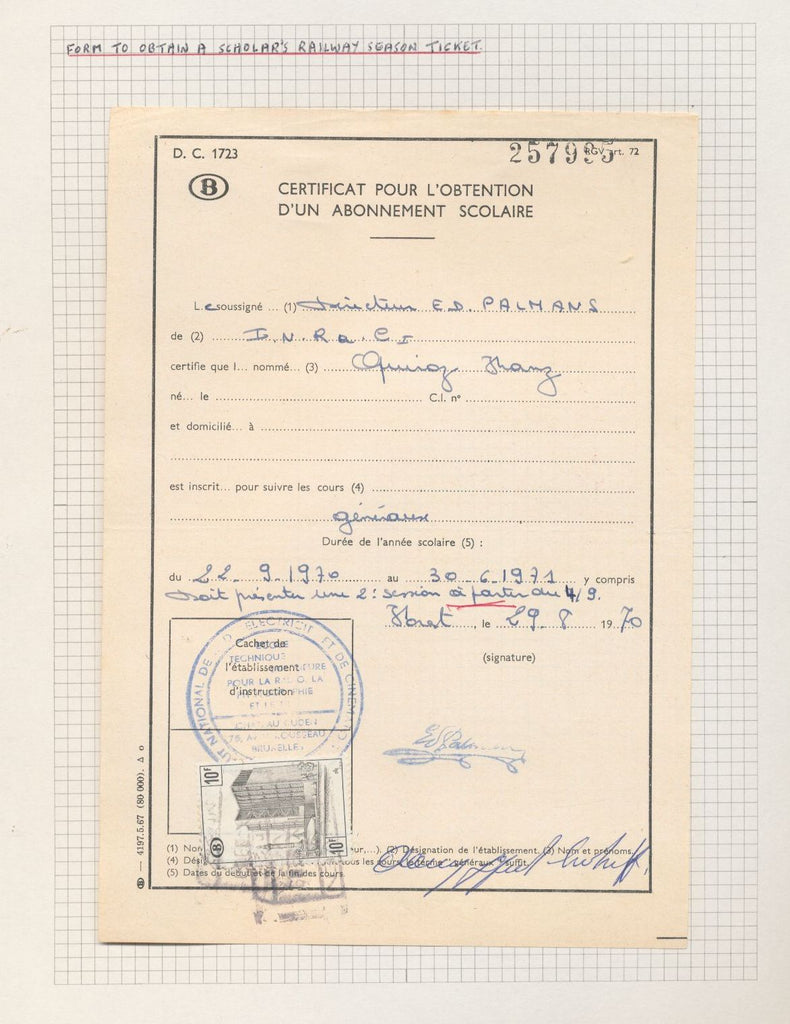 FORM TO OBTAIN A SCHOLAR'S RAILWAY SEASON TICKET.
D. C. 1723
257995 RGV art. 72
B
CERTIFICAT POUR L'OBTENTION
D'UN ABONNEMENT SCOLAIRE
Le soussigné ... (1) Directeur E.D. PALMANS
de (2) I.N.Ra.CI
certifie que l... nommé... (3) Quiroz
né... le C.I. nº
et domicilié... à
est inscrit... pour suivre les cours (4)
généraux
Durée de l'année scolaire (5) :
du 22.9.1970 au 30.6.1971 y compris
Doit présenter une 2e session à partir du 4/9.
le 29.8 1970
(signature)
Cachet de
l'établissement
d'instruction
NATIONAL DE ELECTRICIT ET DE CINEMATO
TECHNIQUE
POUR LA LA
ET LE
BRUXELLE
10F
B
10F
(1) Nom (2) Désignation de l'établissement. (3) Nom et prénoms.
(4) tous les cours, "généraux" suffit.
(5) Dates du début et de la fin des cours.
4197.5.67 (80 000).